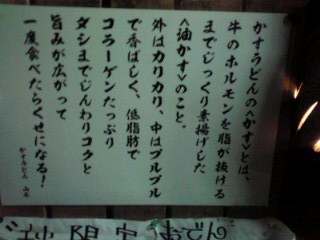 かすうどんの<かす>とは、
牛のホルモンを脂が抜ける
までじっくり素揚げした
<油かす>のこと。
外はカリカリ、中はプルプル
で香ばしく、低脂肪で
コラーゲンたっぷり
ダシまでじんわりコクと
旨みが広がって
一度食べたらくせになる!
かすうどん